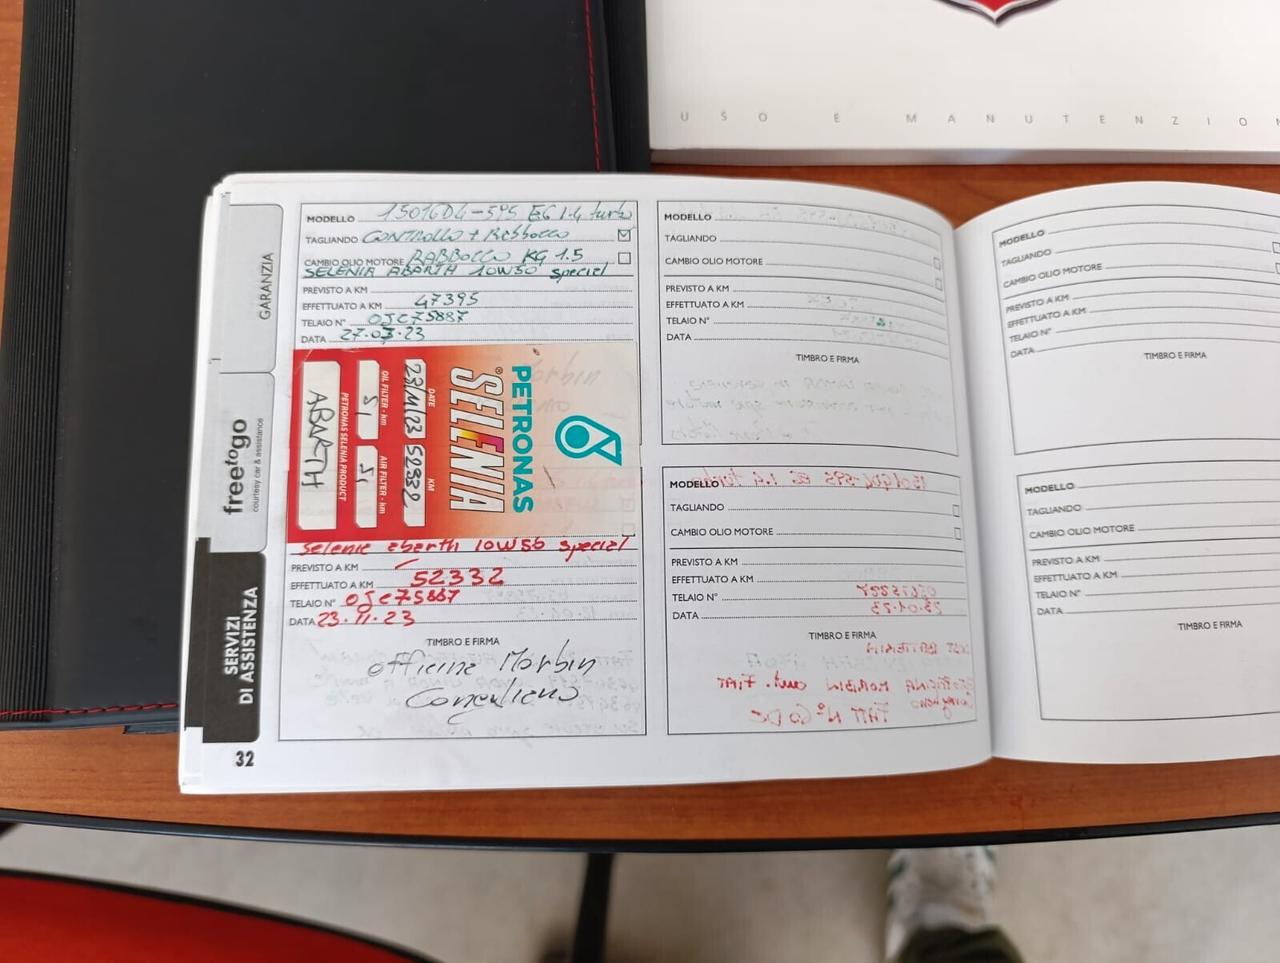 USO E MANUTENZION
GARANZIA
freetogo
courtesy car & assistance
SERVIZI
DI ASSISTENZA
32
MODELLO 1501GD4-595 E6 1.4 turbo
TAGLIANDO CONTROLLO + Rabbocco
CAMBIO OLIO MOTORE RABBOCCO KG 1.5
SELENIA ABARTH 10W50 special
PREVISTO A KM
EFFETTUATO A KM 47395
TELAIO N° 0JC75887
DATA 27.03.23
PETRONAS
SELENIA®
DATE KM
23/11/23 52332
OIL FILTER - km AIR FILTER - km
SI SI
PETRONAS SELENIA PRODUCT
ABARTH
Selenia abarth 10W50 special
PREVISTO A KM
EFFETTUATO A KM 52332
TELAIO N° 0JC75887
DATA 23.11.23
TIMBRO E FIRMA
officine Morbin
Conegliano
MODELLO
TAGLIANDO
CAMBIO OLIO MOTORE
PREVISTO A KM
EFFETTUATO A KM
TELAIO N°
DATA
TIMBRO E FIRMA
MODELLO
TAGLIANDO
CAMBIO OLIO MOTORE
PREVISTO A KM
EFFETTUATO A KM
TELAIO N°
DATA
TIMBRO E FIRMA
MODELLO
TAGLIANDO
CAMBIO OLIO MOTORE
PREVISTO A KM
EFFETTUATO A KM
TELAIO N°
DATA
TIMBRO E FIRMA
MODELLO
TAGLIANDO
CAMBIO OLIO MOTORE
PREVISTO A KM
EFFETTUATO A KM
TELAIO N°
DATA
TIMBRO E FIRMA